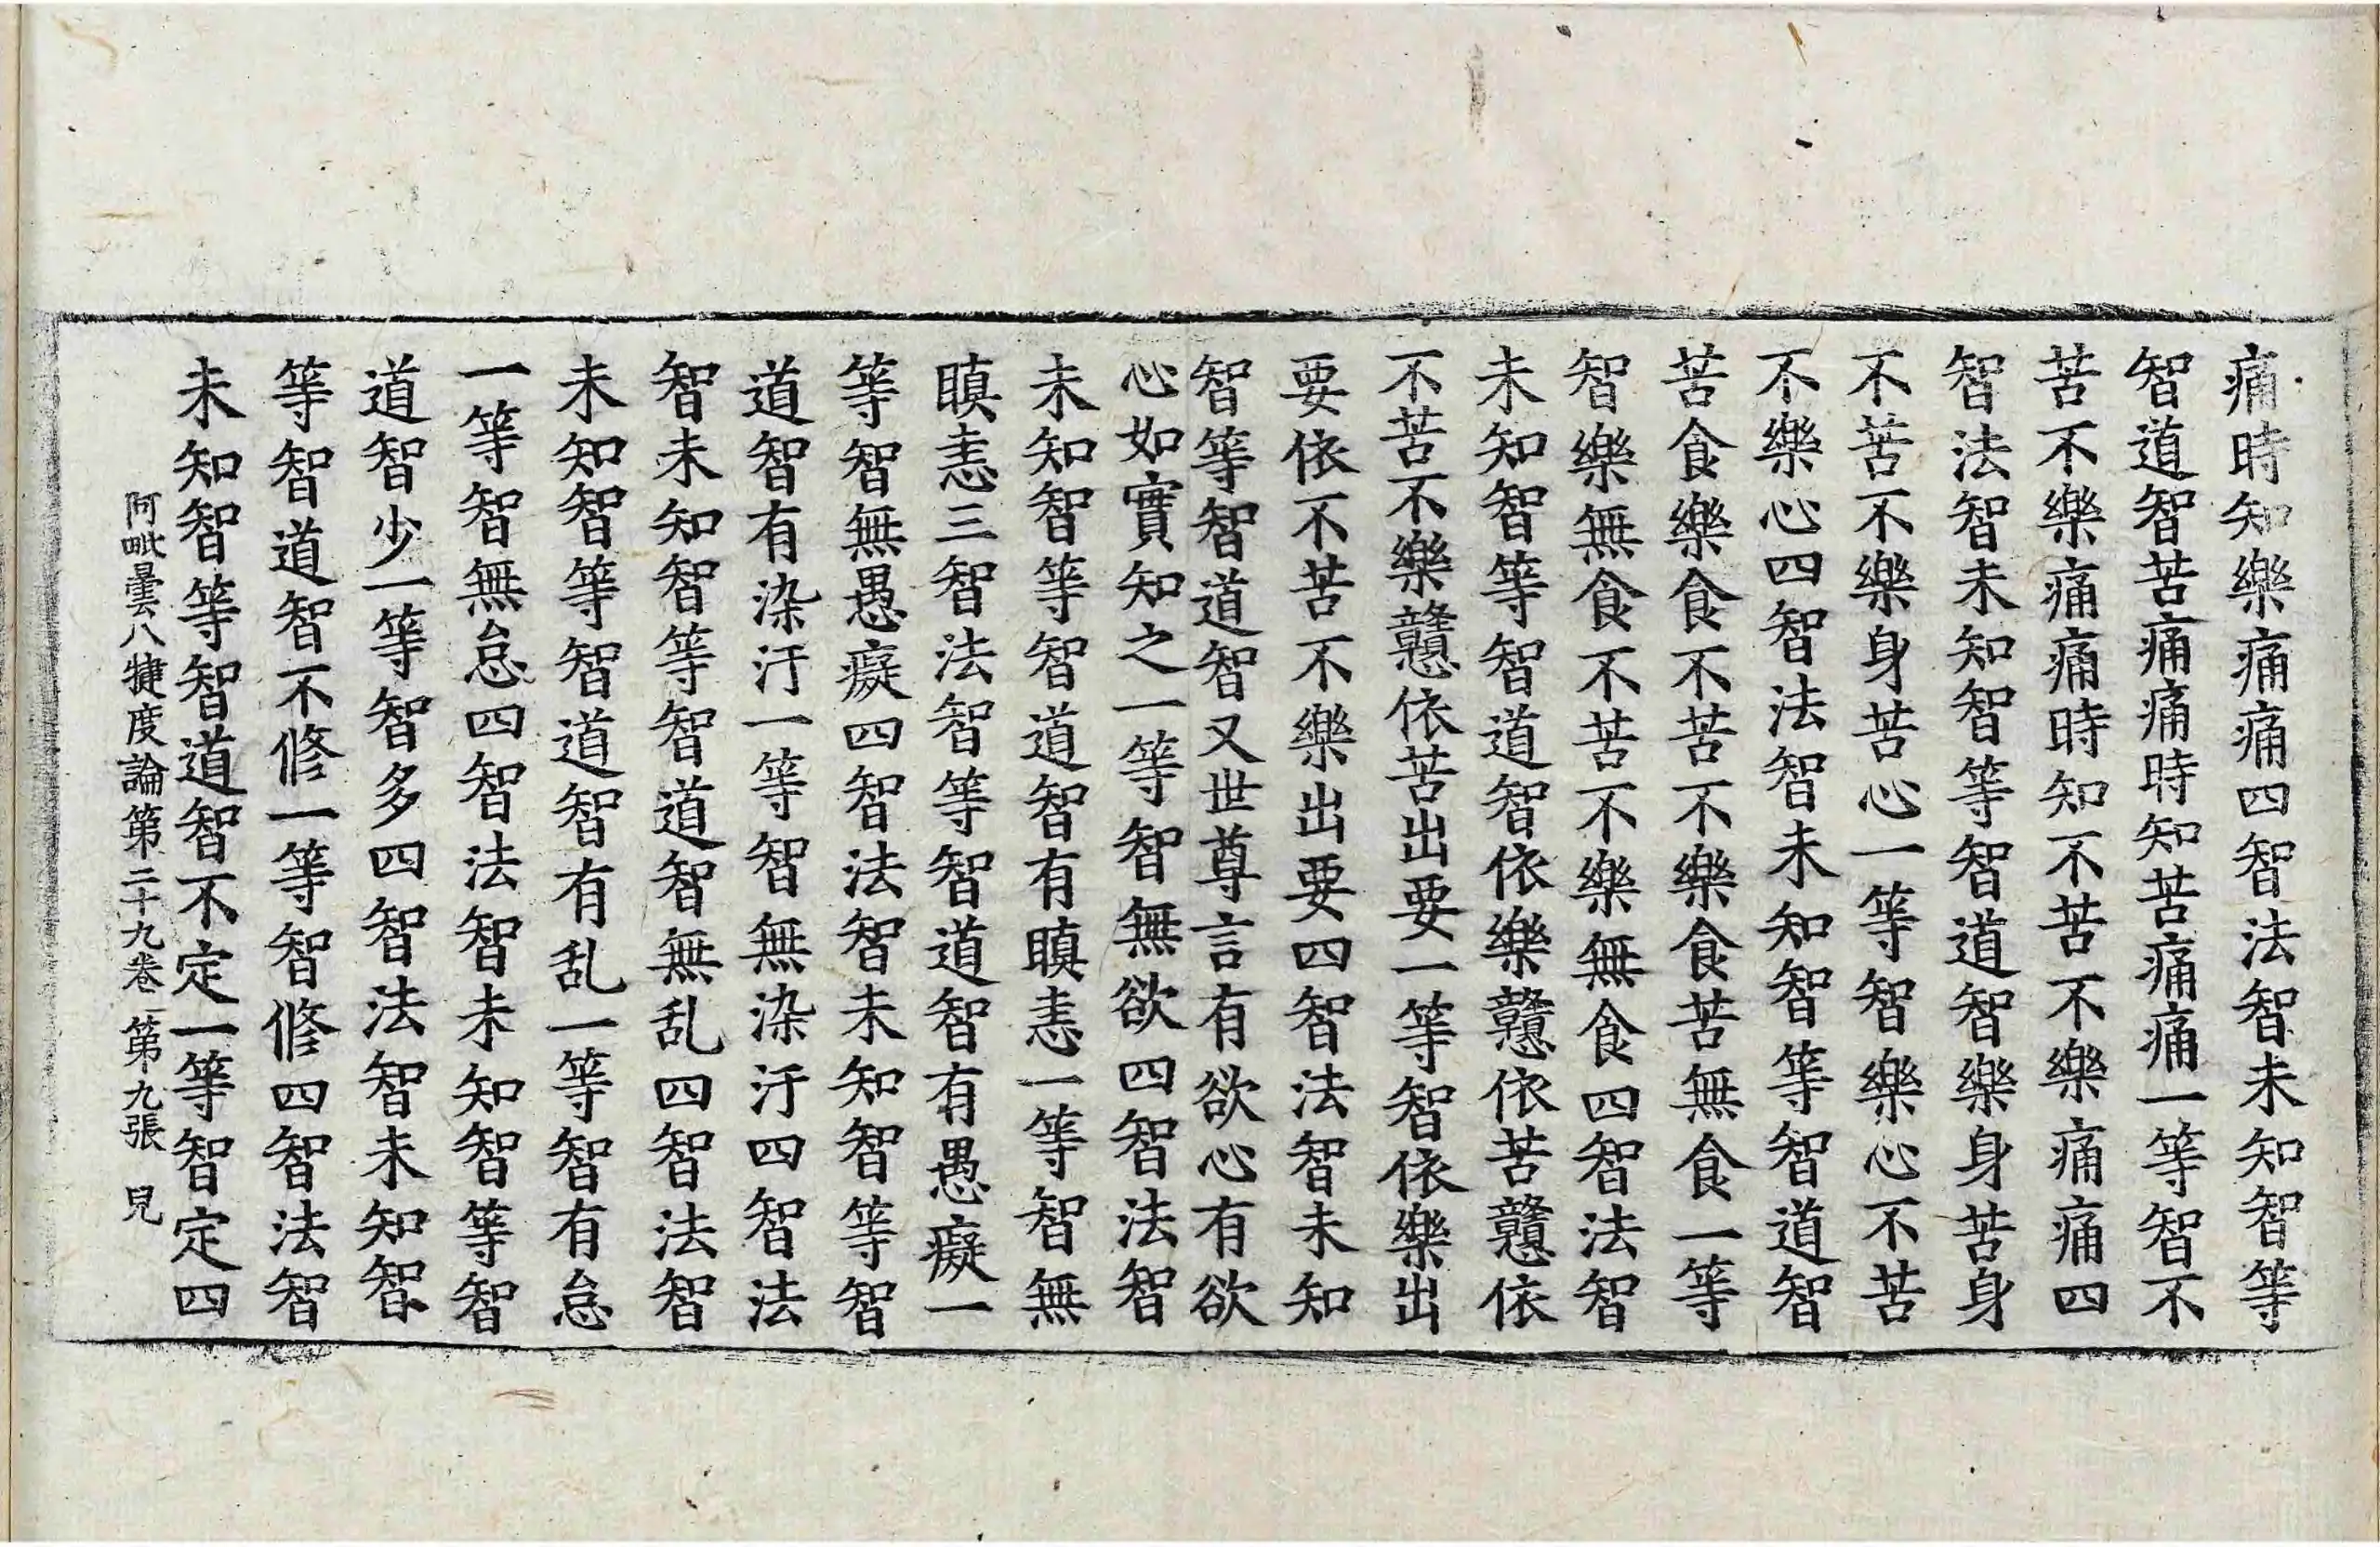 痛時知樂痛痛四智法智未知智等
智道智苦痛痛時知苦痛痛一等智不
苦不樂痛痛時知不苦不樂痛痛四
智法智未知智等智道智樂身苦身
不苦不樂身苦心一等智樂心不苦
不樂心四智法智未知智等智道智
苦食樂食不苦不樂食苦無食一等
智樂無食不苦不樂無食四智法智
未知智等智道智依樂戆依苦戆依
不苦不樂戆依苦出要一等智依樂出
要依不苦不樂出要四智法智未知
智等智道智又世尊言有欲心有欲
心如實知之一等智無欲四智法智
未知智等智道智有瞋恚一等智無
瞋恚三智法智等智道智有愚癡一
等智無愚癡四智法智未知智等智
道智有染汙一等智無染汙四智法
智未知智等智道智無乱四智法智
未知智等智道智有乱一等智有怠
一等智無怠四智法智未知智等智
道智少一等智多四智法智未知智
等智道智不修一等智修四智法智
未知智等智道智不定一等智定四
阿毗曇八犍度論第二十九卷 第九張 皃